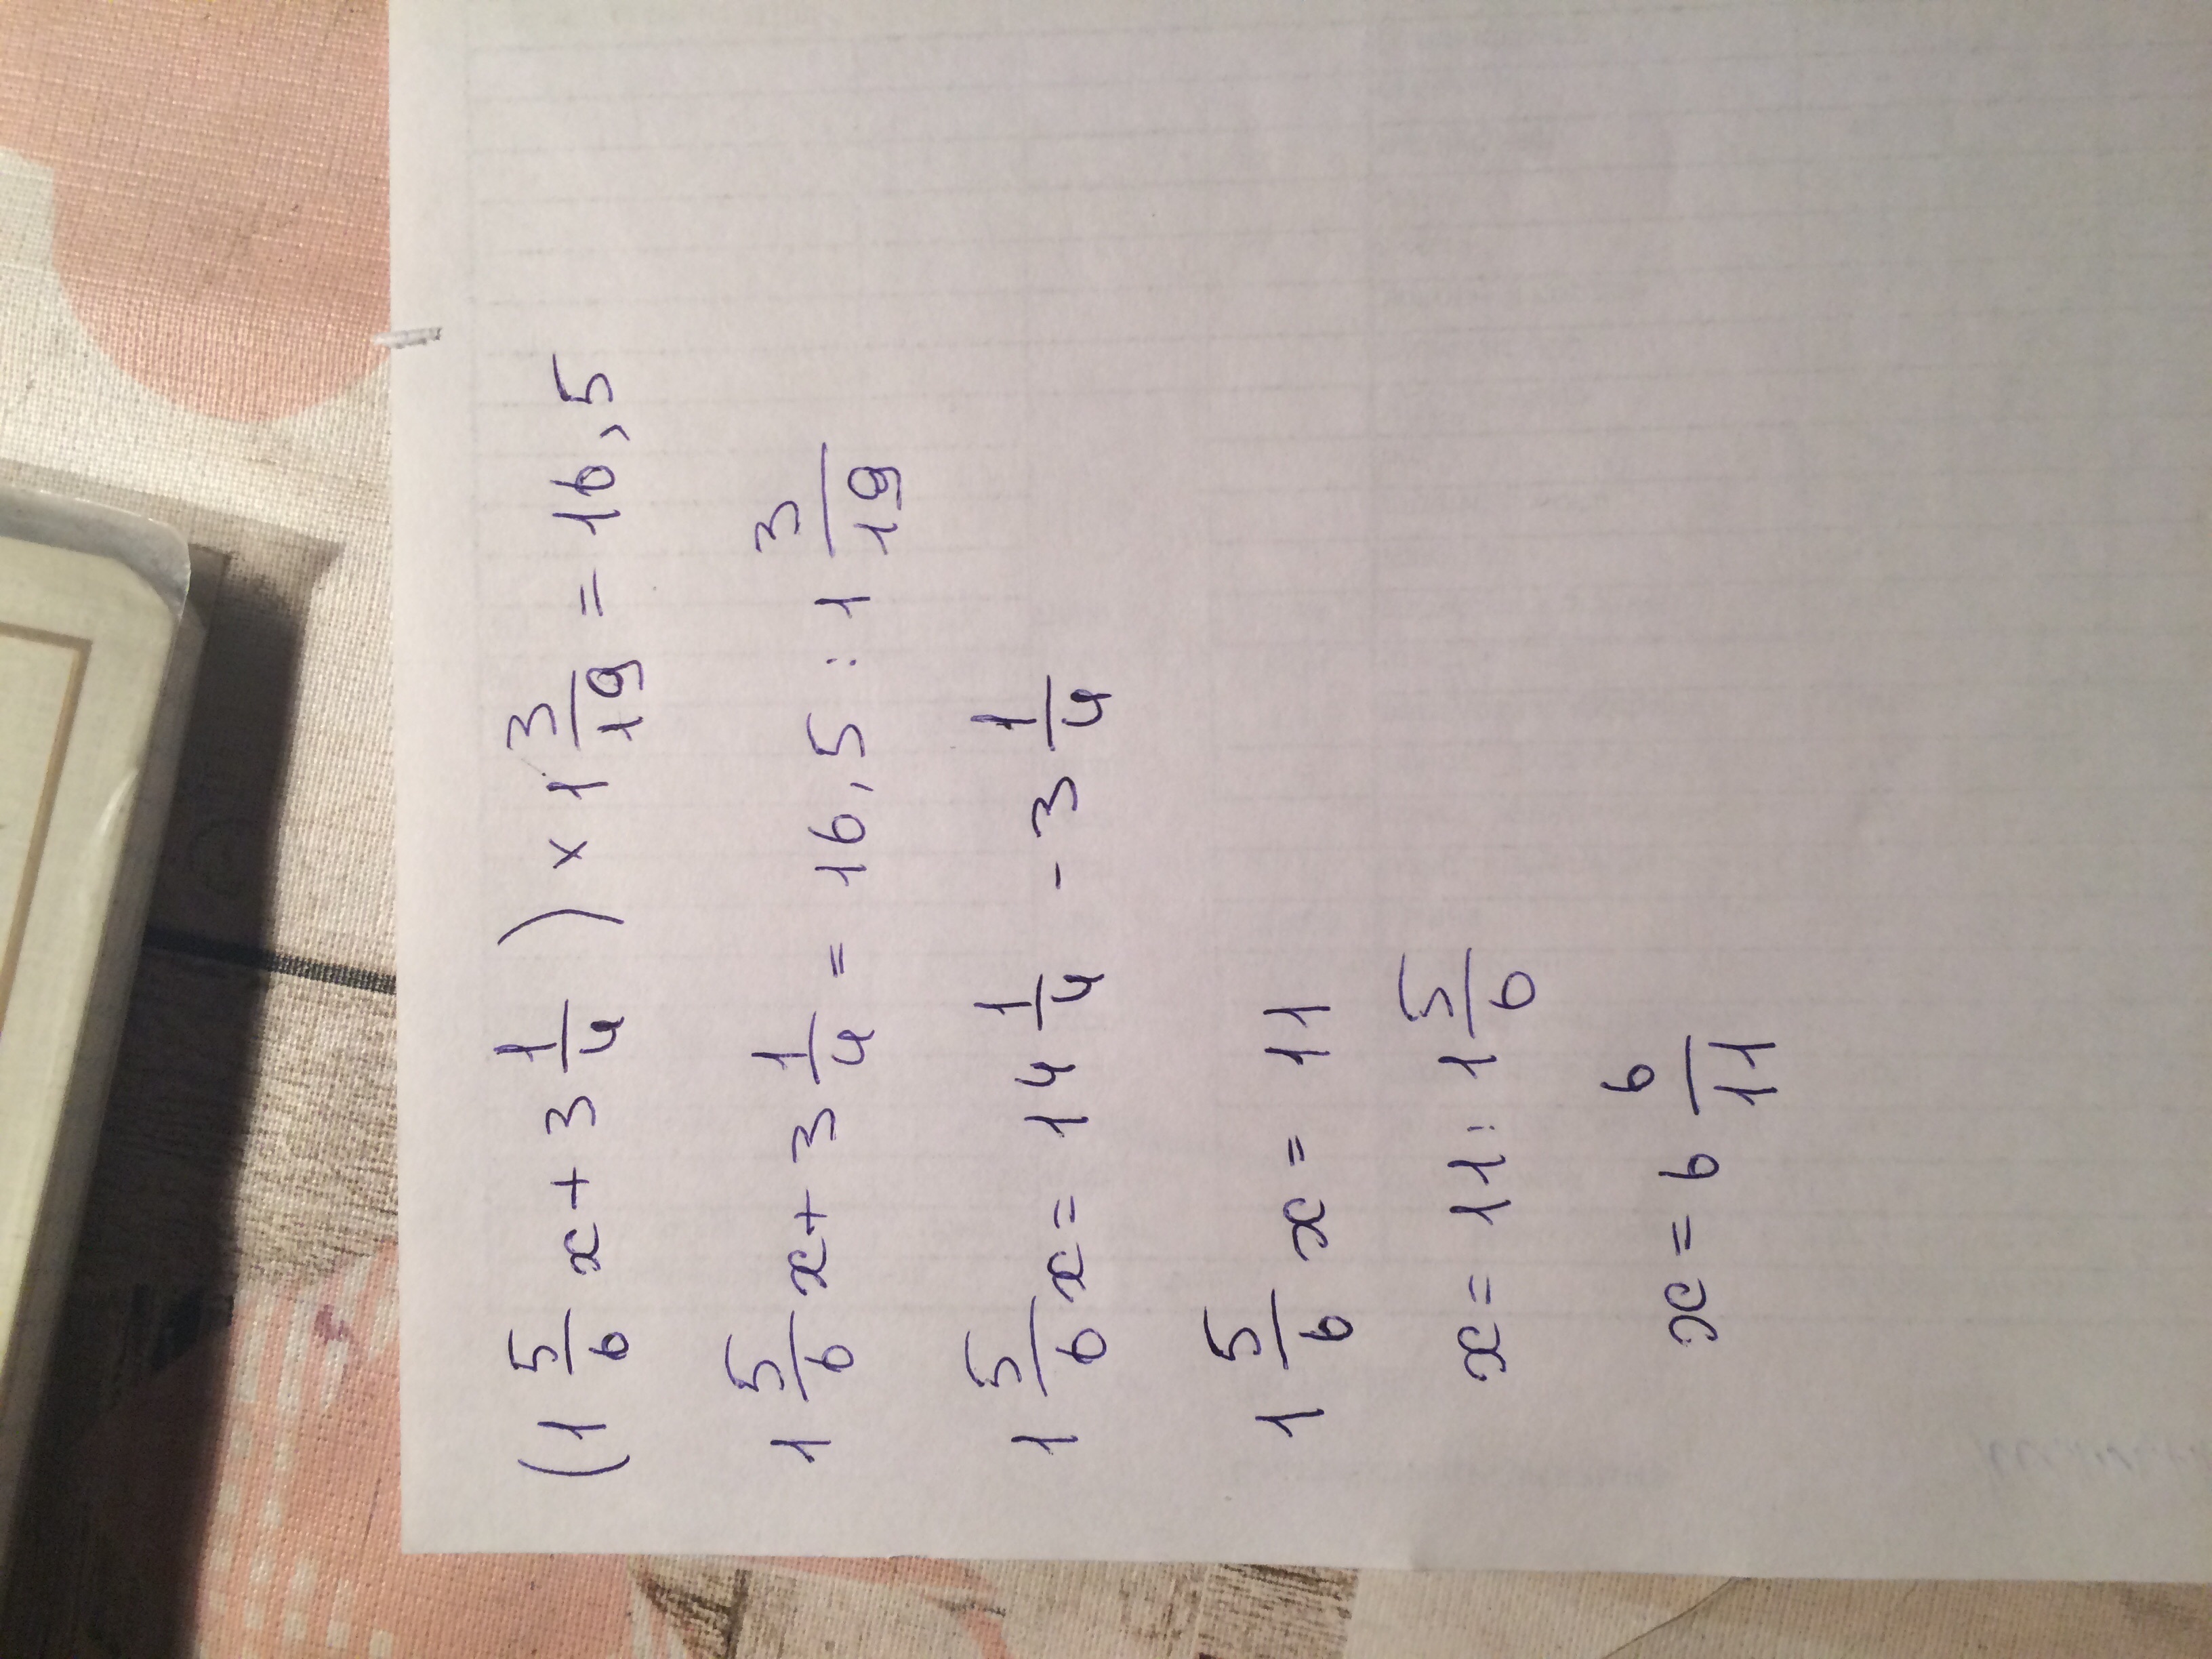 (1 5/6 x + 3 1/4) × 1 3/19 = 16,5
1 5/6 x + 3 1/4 = 16,5 : 1 3/19
1 5/6 x = 14 1/4 - 3 1/4
1 5/6 x = 11
x = 11 : 1 5/6
x = 6 6/11